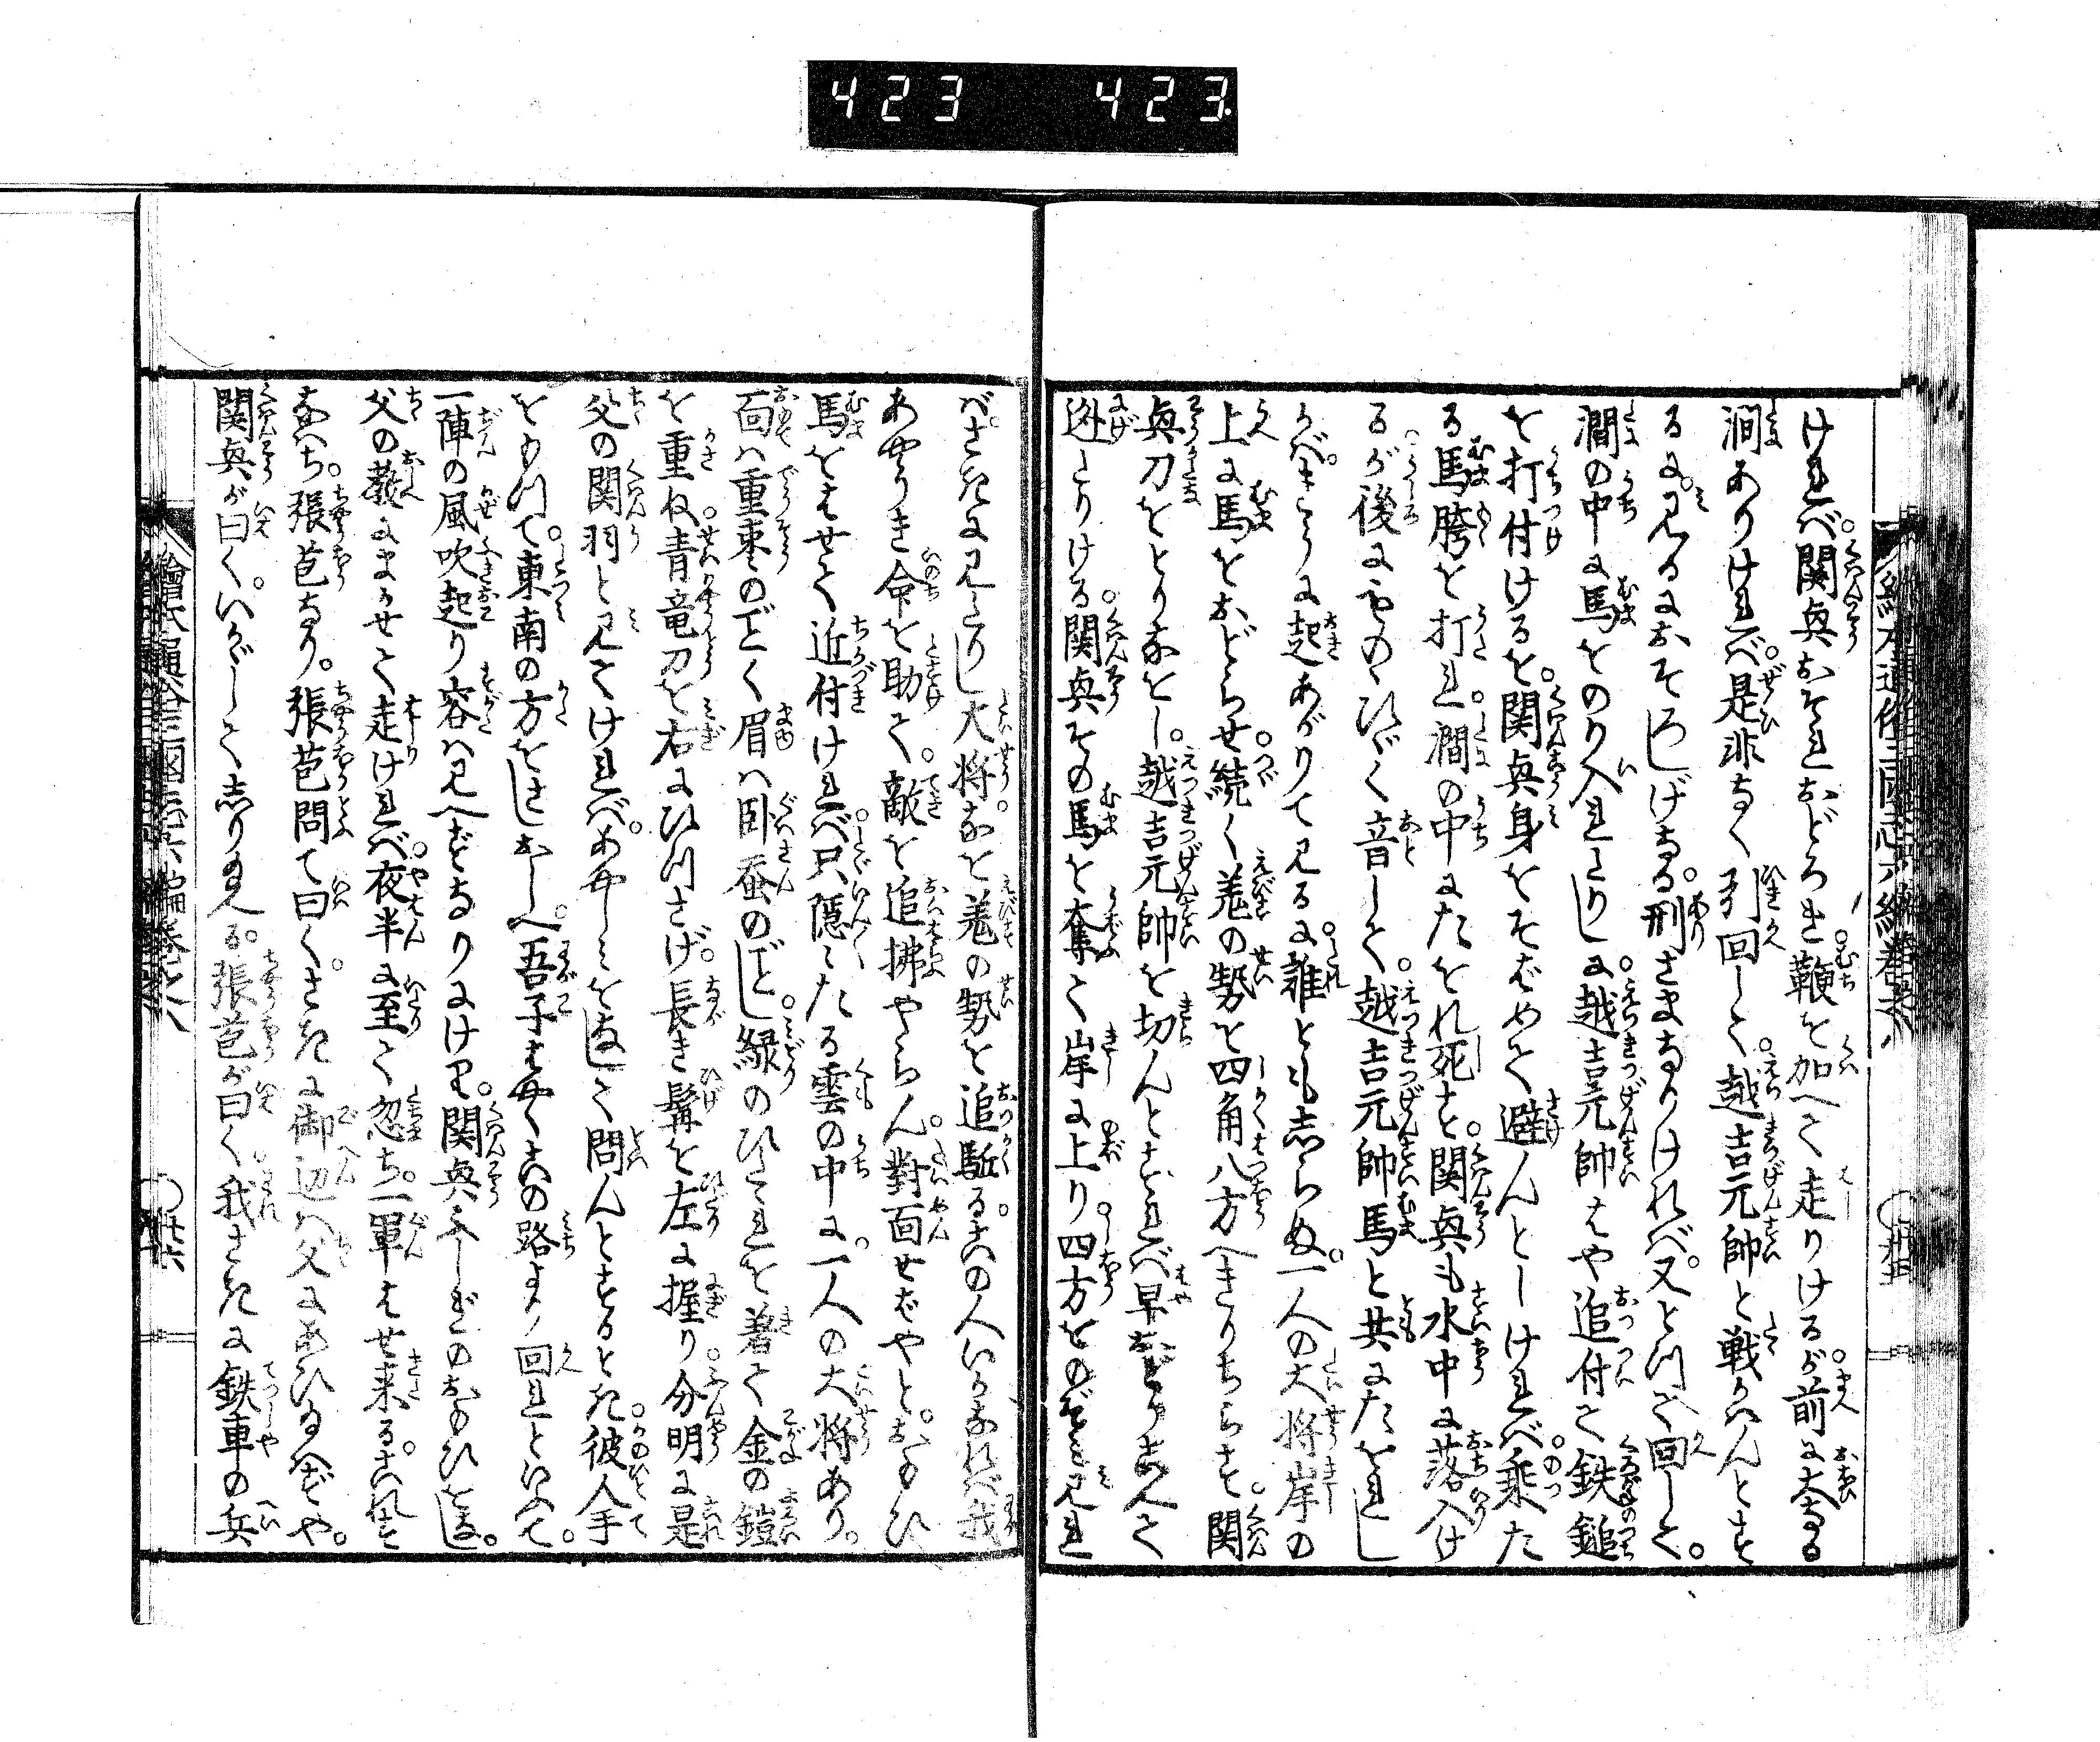 423 423
けれバ。関興おそれおどろき鞭を加へて走りけるが。前に大なる
澗ありけれバ。是非なく引回して。越吉元帥と戦ハんとす
るに。見るにおそろしげなる。形さまなりけれバ。又とつて回して。
澗の中に馬をのり入れたりしに。越吉元帥はや追付て鉄鎚
を打付けるを。関興身をそばめて避んとしけれバ。乗た
る馬胯を打れ。澗の中にたをれ死す。関興も水中に落入け
るが。後にものひゞく音して。越吉元帥馬と共にたをれし
かバ。きうに起あがりて見るに。誰ともしらぬ。一人の大将岸の
上に馬をおどらせ。続く羗の勢を四角八方へきりちらす。関
興刀をとりなをし。越吉元帥を切んとすれバ早おどりこえて
迯去りける。関興その馬を奪て岸に上り。四方をのぞミ見れ
バ。さきに見たりし大将なを羗の勢を追駈る。この人いかなれバ我
あやうき命を助て。敵を追拂やらん。對面せばやと。おもひ
馬をはせて近付けれバ。只隠々たる雲の中に。一人の大将あり。
面ハ重棗のごとく眉ハ臥蚕のごとし。緑のひたゝれを着て金の鎧
を重ね。青竜刀を右にひつさげ。長き髯を左に握り。分明に是
父の関羽と見えけれバ。あやしミをなして問んとするとき。彼人手
をもつて。東南の方をさしおしへ。吾子はやくこの路より回れといへて。
一陣の風吹起り容ハ見へずなりにけり。関興ふしぎのおもひをなし。
父の教にまかせて走けれバ。夜半に至て忽ち。一軍はせ来る。これを
なハち。張苞なり。張苞問て曰く。さきに御辺ハ父にあひ給ハずや。
関興が曰く。いかゞして志り給へる。張苞が曰く。我さきに鉄車の兵
繪本通俗三國志六編巻之八
廿六